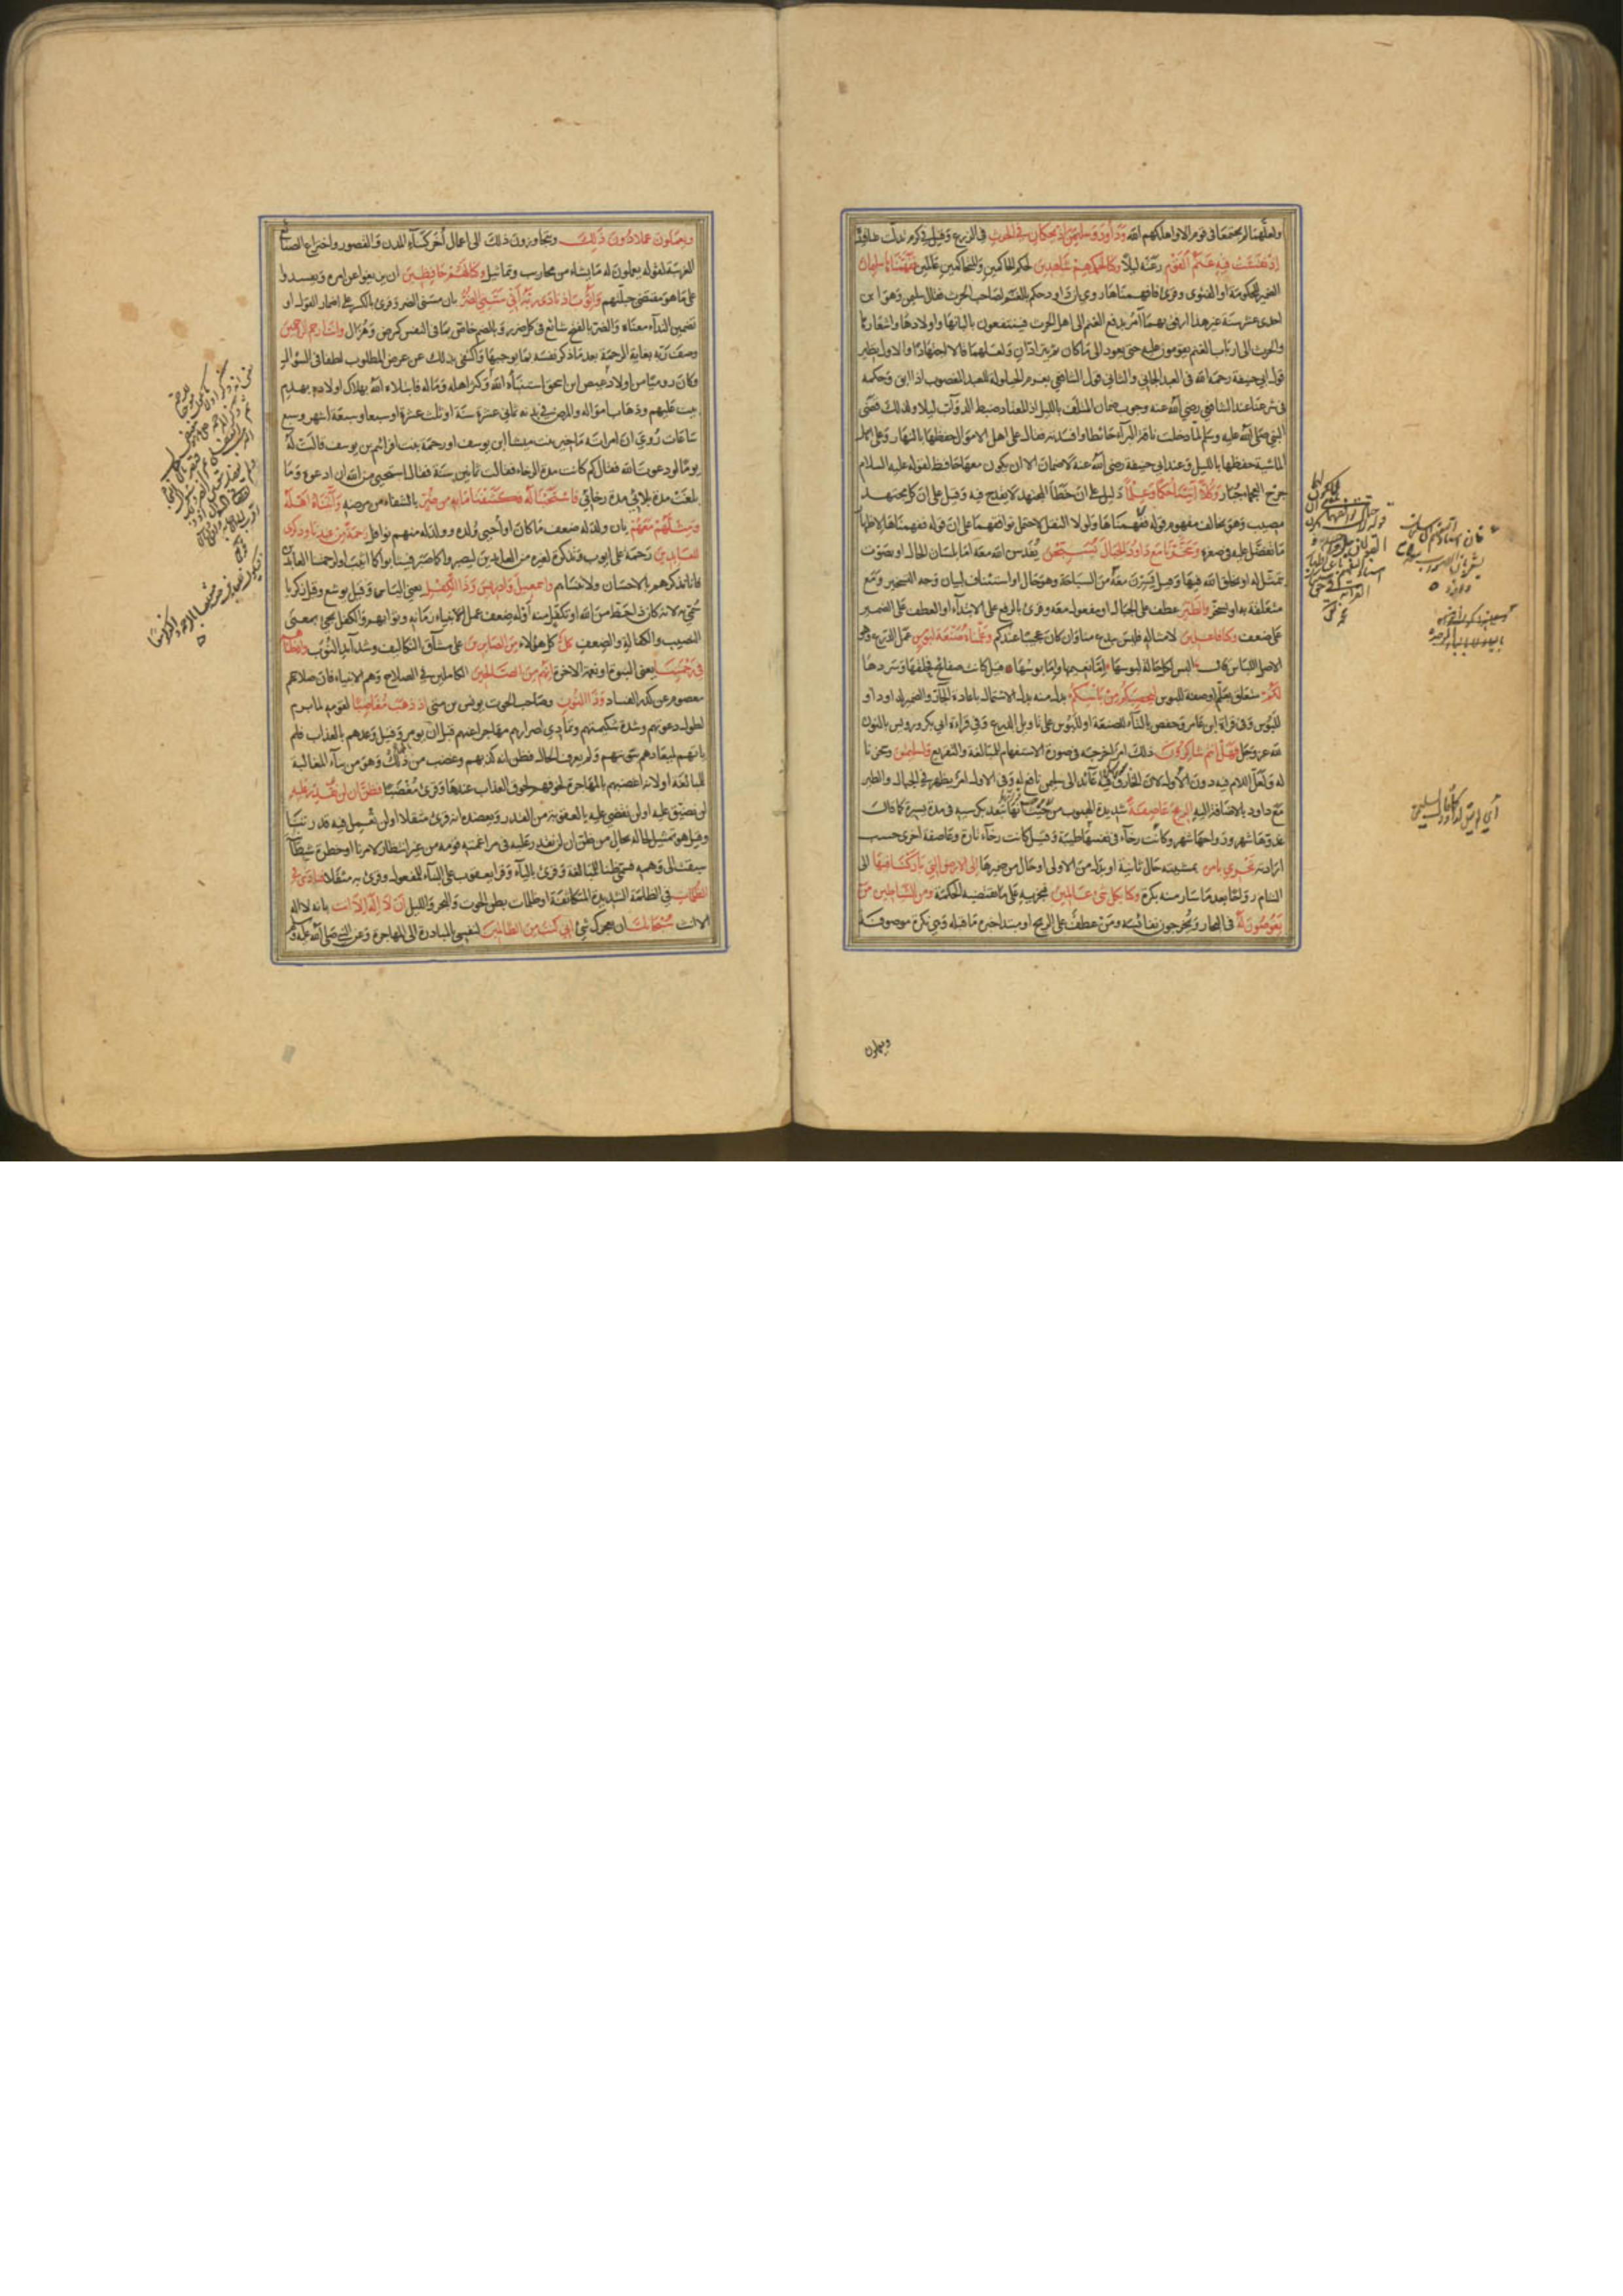 ولعلهما لم يجتمعا في قوم الا واهلكهم الله وداود وسليمن اذ يحكمان في الحرث في الزرع وقيل في كرم تدلت عناقيده
اذ نفشت فيه غنم القوم رعته ليلا وكنا لحكمهم شاهدين لحكم الحاكمين والمتحاكمين عالمين ففهمناها سليمان
الضمير للحكومة او الفتوى وقرئ فافهمناها روي ان داود حكم بالغنم لصاحب الحرث فقال سليمن وهو ابن
احدى عشرة سنة غير هذا ارفق بهما امر بدفع الغنم الى اهل الحرث فينتفعون بالبانها واولادها واشعارها
والحرث الى ارباب الغنم يقومون عليه حتى يعود الى ما كان ثم يترادان ولعلهما قالا اجتهادا والاول نظير
قول ابي حنيفة رحمه الله في العبد الجاني والثاني قول الشافعي بغرم الحيلولة للعبد المغصوب اذا ابق وحكمه
في شرعنا عند الشافعي رضي الله عنه وجوب ضمان المتلف بالليل اذ المعتاد ضبط الدواب ليلا ولذلك قضى
النبي صلى الله عليه وسلم لما دخلت ناقة البراء حائطا وافسدته فقال على اهل الاموال حفظها بالنهار وعلى اهل
الماشية حفظها بالليل وعند ابي حنيفة رضي الله عنه لا ضمان الا ان يكون معها حافظ لقوله عليه السلام
جرح العجماء جبار وكلا آتينا حكما وعلما دليل على ان خطأ المجتهد لا يقدح فيه وقيل على ان كل مجتهد
مصيب وهو يخالف مفهوم قوله ففهمناها ولولا النقل لاحتمل توافقهما على ان قوله ففهمناها لاظهار
ما تفضل عليه في صغره وسخرنا مع داود الجبال يسبحن يقدسن الله معه اما بلسان الحال او بصوت
يتمثل له او بخلق الله فيها وقيل يسرن معه من السباحة وهو حال او استئناف لبيان وجه التسخير ومع
متعلقة به او بسخرنا والطير عطف على الجبال او مفعول معه وقرئ بالرفع على الابتداء او العطف على الضمير
على ضعف وكنا فاعلين لامثاله فليس ببدع منا وان كان عجيبا عندكم وعلمناه صنعة لبوس عمل الدرع وهو في
الاصل اللباس قال البس لكل حالة لبوسها اما نعيمها واما بوسها قيل كانت صفائح فحلقها وسردها
لكم متعلق بعلم او صفة للبوس ليحصنكم من بأسكم بدل منه بدل الاشتمال باعادة الجار والضمير لداود او
للبوس وفي قراءة ابن عامر وحفص بالتاء للصنعة او للبوس على تاويل الدرع وفي قراءة ابي بكر ورويس بالنون
لله عز وجل فهل انتم شاكرون ذلك امر اخرجه في صورة الاستفهام للمبالغة والتقريع ولسليمن وسخرنا
له ولعل اللام فيه دون الاول لان الخارق فيه عائد الى سليمن نافع له وفي الاول امر يظهر في الجبال والطير
مع داود بالاضافة اليه الريح عاصفة شديدة الهبوب من حيث انها تبعد بكرسيه في مدة يسيرة كما قال
غدوها شهر ورواحها شهر وكانت رخاء في نفسها طيبة وقيل كانت رخاء تارة وعاصفة اخرى حسب
ارادته تجري بامره بمشيئته حال ثانية او بدل من الاولى او حال من ضميرها الى الارض التي باركنا فيها الى
الشام رواحا بعد ما سار منه بكرة وكنا بكل شئ عالمين فنجريه على ما تقتضيه الحكمة ومن الشياطين من
يغوصون له في البحار ويخرجون نفائسه ومن عطف على الريح او مبتدا خبره ما قبله وهي نكرة موصوفة
ويعملون
ويعملون عملا دون ذلك ويتجاوزون ذلك الى اعمال أخر كبناء المدن والقصور واختراع الصنائع
الغريبة لقوله يعملون له ما يشاء من محاريب وتماثيل وكنا لهم حافظين ان يزيغوا عن امره ويفسدوا
على ما هو مقتضى جبلتهم وايوب اذ نادى ربه أني مسني الضر بان مسني الضر وقرئ بالكسر على اضمار القول او
تضمين النداء معناه والضر بالفتح شائع في كل ضرر وبالضم خاص بما في النفس كمرض وهزال وانت ارحم الراحمين
وصف ربه بغاية الرحمة بعد ما ذكر نفسه بما يوجبها واكتفى بذلك عن عرض المطلوب لطفا في السؤال
وكان روميا من اولاد عيص ابن اسحق استنبأه الله وكثر اهله وماله فابتلاه الله بهلاك اولاده بهدم
بيت عليهم وذهاب امواله والمرض في بدنه ثماني عشرة سنة او ثلث عشرة او سبعا وسبعة اشهر وسبع
ساعات روي ان امراته ماخير بنت ميشا ابن يوسف او رحمة بنت افرائيم بن يوسف قالت له
يوما لو دعوت الله فقال كم كانت مدة الرخاء فقالت ثمانين سنة فقال استحيي من الله ان ادعوه وما
بلغت مدة بلائي مدة رخائي فاستجبنا له فكشفنا ما به من ضر بالشفاء من مرضه وآتيناه اهله
ومثلهم معهم بان ولد له ضعف ما كان او أحيي ولده وولد له منهم نوافل رحمة من عندنا وذكرى
للعابدين رحمة على ايوب وتذكرة لغيره من العابدين ليصبروا كما صبر فيثابوا كما اثيب او لرحمتنا العابدين
فانا نذكرهم بالاحسان ولا ننساهم واسمعيل وادريس وذا الكفل يعني الياس وقيل يوشع وقيل زكريا
سمي به لانه كان ذا حظ من الله او تكفل منه او له ضعف عمل الانبياء زمانه وثوابهم والكفل يجئ بمعنى
النصيب والكفالة والضعف كل كل هؤلاء من الصابرين على مشاق التكاليف وشدائد النوب وادخلناهم
في رحمتنا يعني النبوة او نعمة الاخرة انهم من الصالحين الكاملين في الصلاح وهم الانبياء فان صلاحهم
معصوم عن كدر الفساد وذا النون وصاحب الحوت يونس بن متى اذ ذهب مغاضبا لقومه لما برم
لطول دعوتهم وشدة شكيمتهم وتمادي اصرارهم مهاجرا عنهم قبل ان يومر وقيل وعدهم بالعذاب فلم
ياتهم لميعادهم بتوبتهم ولم يعرف الحال فظن انه كذبهم وغضب من ذلك وهو من بناء المغالبة
للمبالغة او لانه اغضبهم بالمهاجرة لخوفهم لحوق العذاب عندها وقرئ مغضبا فظن ان لن نقدر عليه
لن نضيق عليه او لن نقضي عليه بالعقوبة من القدر ويعضده انه قرئ مثقلا او لن نعمل فيه قدرتنا
وقيل هو تمثيل لحاله بحال من ظن ان لن نقدر عليه في مراغمته قومه من غير انتظار لامرنا او خطرة شيطانية
سبقت الى وهمه فسمي ظنا للمبالغة وقرئ بالياء وقرا يعقوب على البناء للمفعول وقرئ به مثقلا فنادى في
الظلمات في الظلمة الشديدة المتكاثفة او ظلمات بطن الحوت والبحر والليل أن لا اله الا انت بانه لا اله
الا انت سبحانك ان يعجزك شئ اني كنت من الظالمين لنفسي بالمبادرة الى المهاجرة وعن النبي صلى الله عليه وسلم